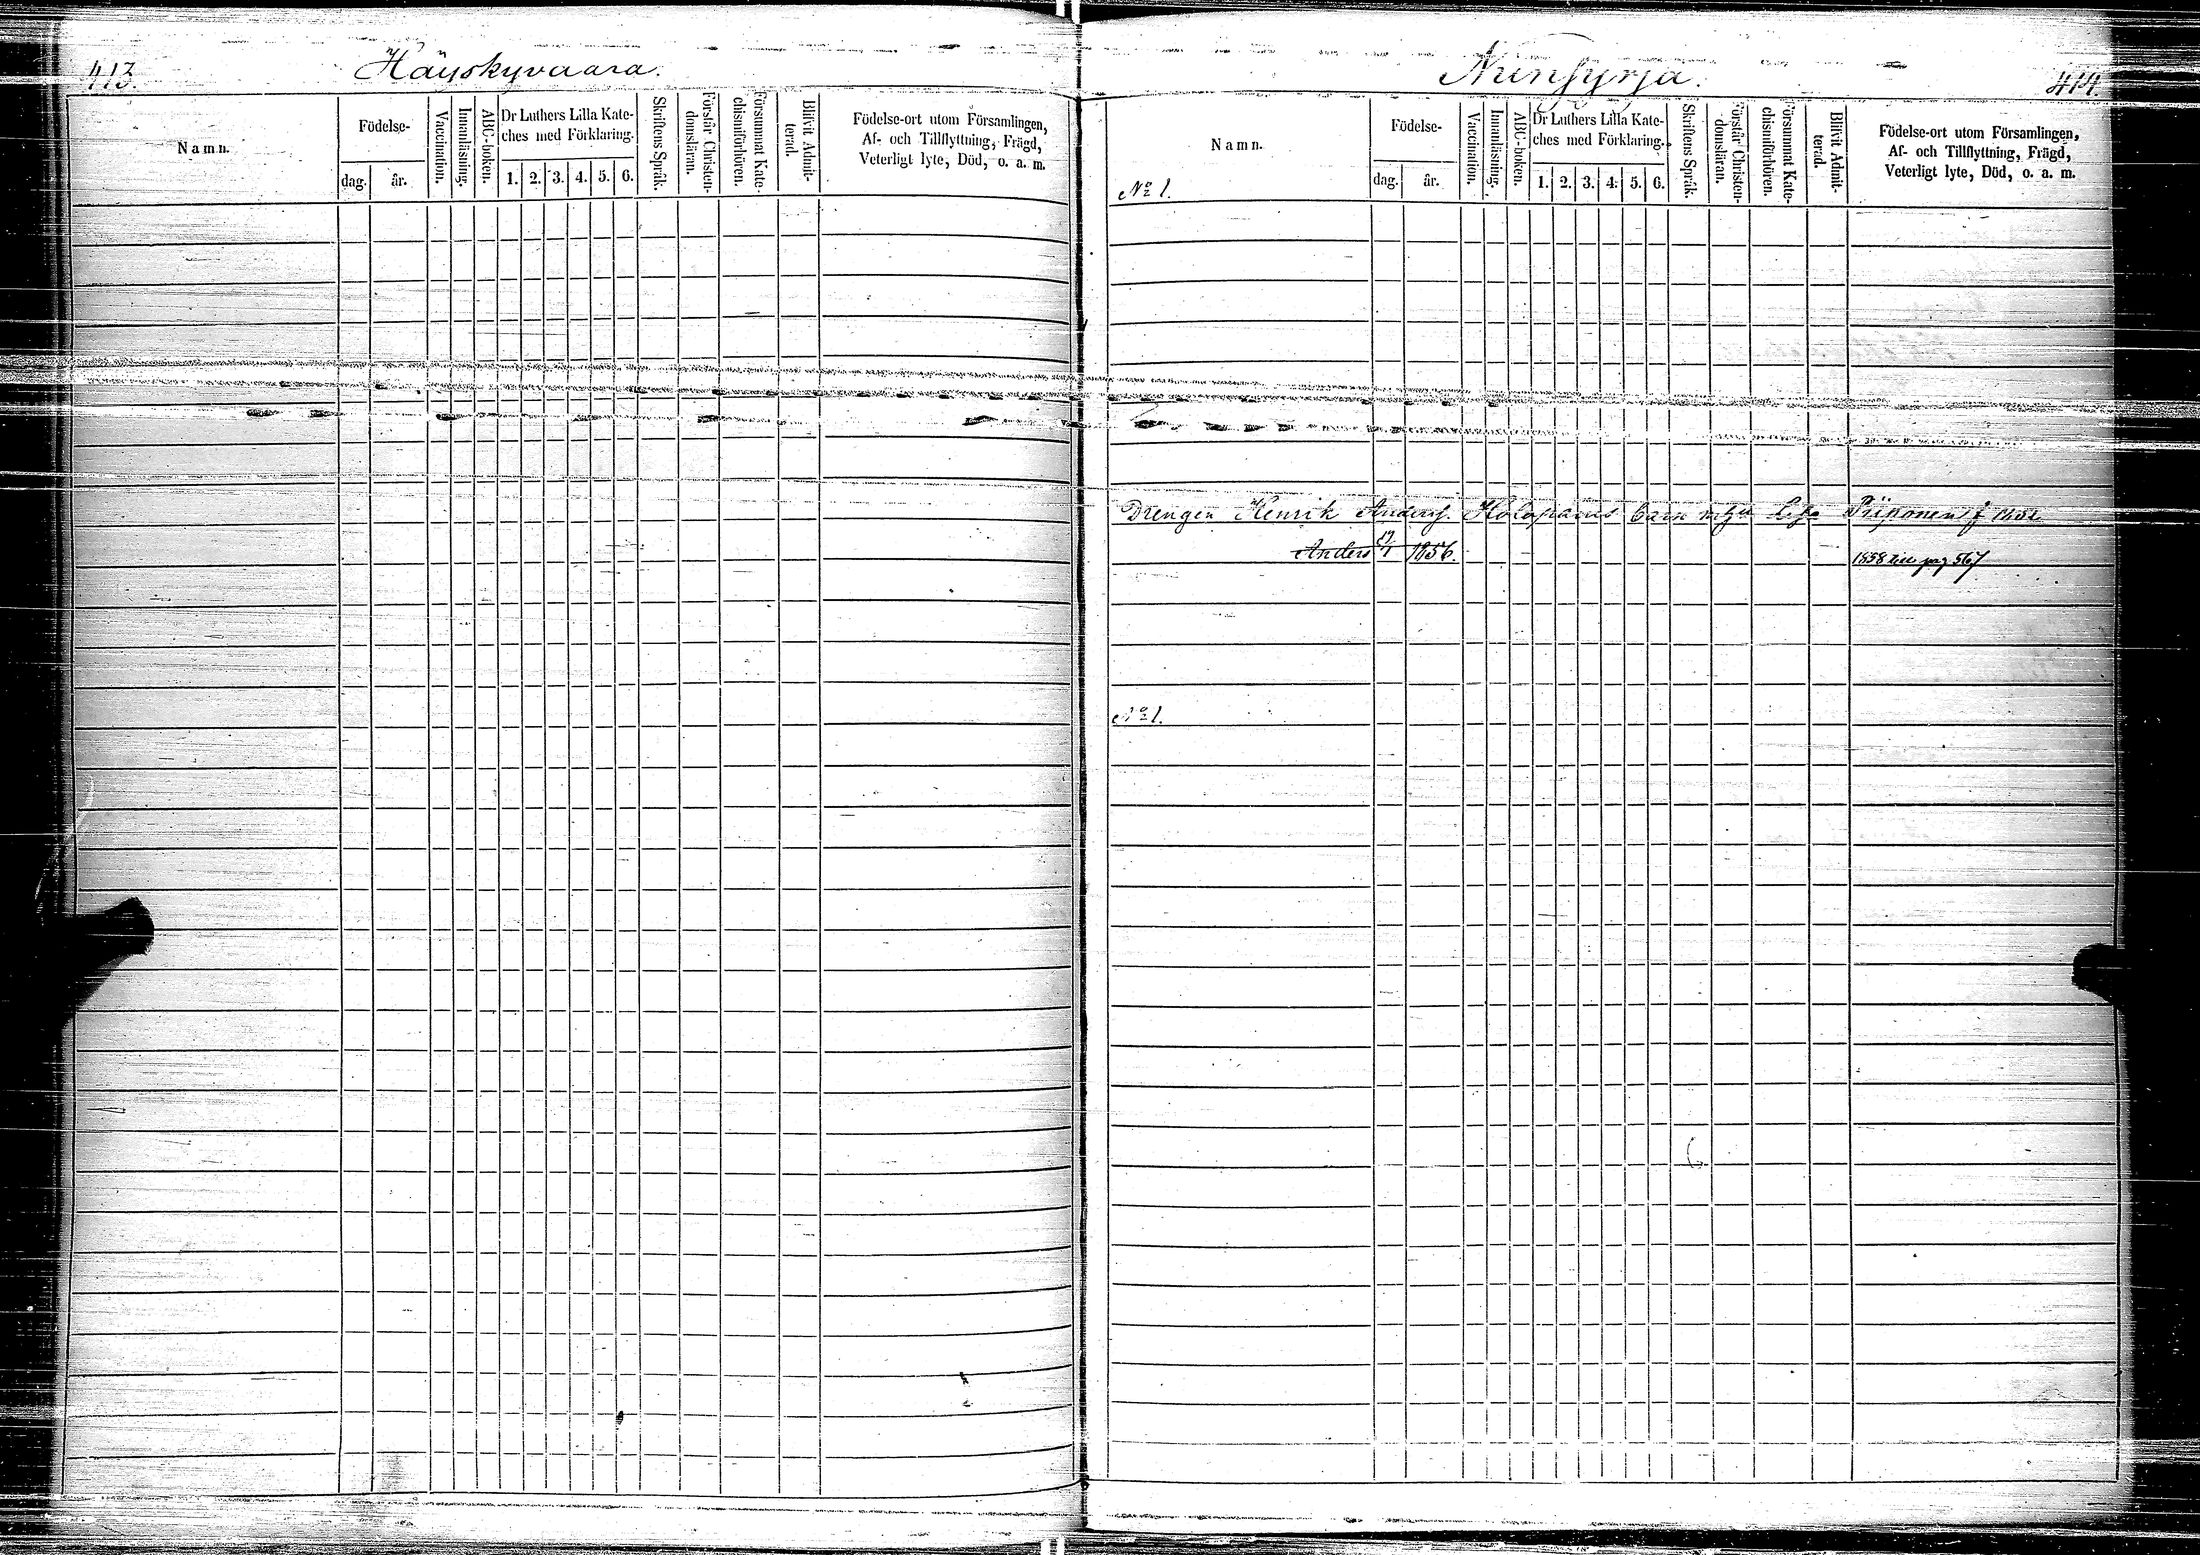 413.
Häyskyvaara.
Namn.
Födelse-
dag.
år.
Vaccination.
Innanläsning.
ABC-boken.
Dr Luthers Lilla Kate-
ches med Förklaring.
1. 2. 3. 4. 5. 6.
Skriftens Språk.
Förstår Christen-
domsläran.
Försummat Kate-
chismiförhören.
Blifvit Admit-
terad.
Födelse-ort utom Församlingen,
Af- och Tillflyttning, Frägd,
Veterligt lyte, Död, o. a. m.
414.
Namn.
No 1.
Födelse-
dag.
år.
Vaccination.
Innanläsning.
ABC-boken.
Dr Luthers Lilla Kate-
ches med Förklaring.
1. 2. 3. 4. 5. 6.
Skriftens Språk.
Förstår Christen-
domsläran.
Försummat Kate-
chismiförhören.
Blifvit Admit-
terad.
Födelse-ort utom Församlingen,
Af- och Tillflyttning, Frägd,
Veterligt lyte, Död, o. a. m.
Drengen Henrik Anderss. Holopains barn Lisa Piiponen
Anders 1856.
1858 till pag 567
No 1.